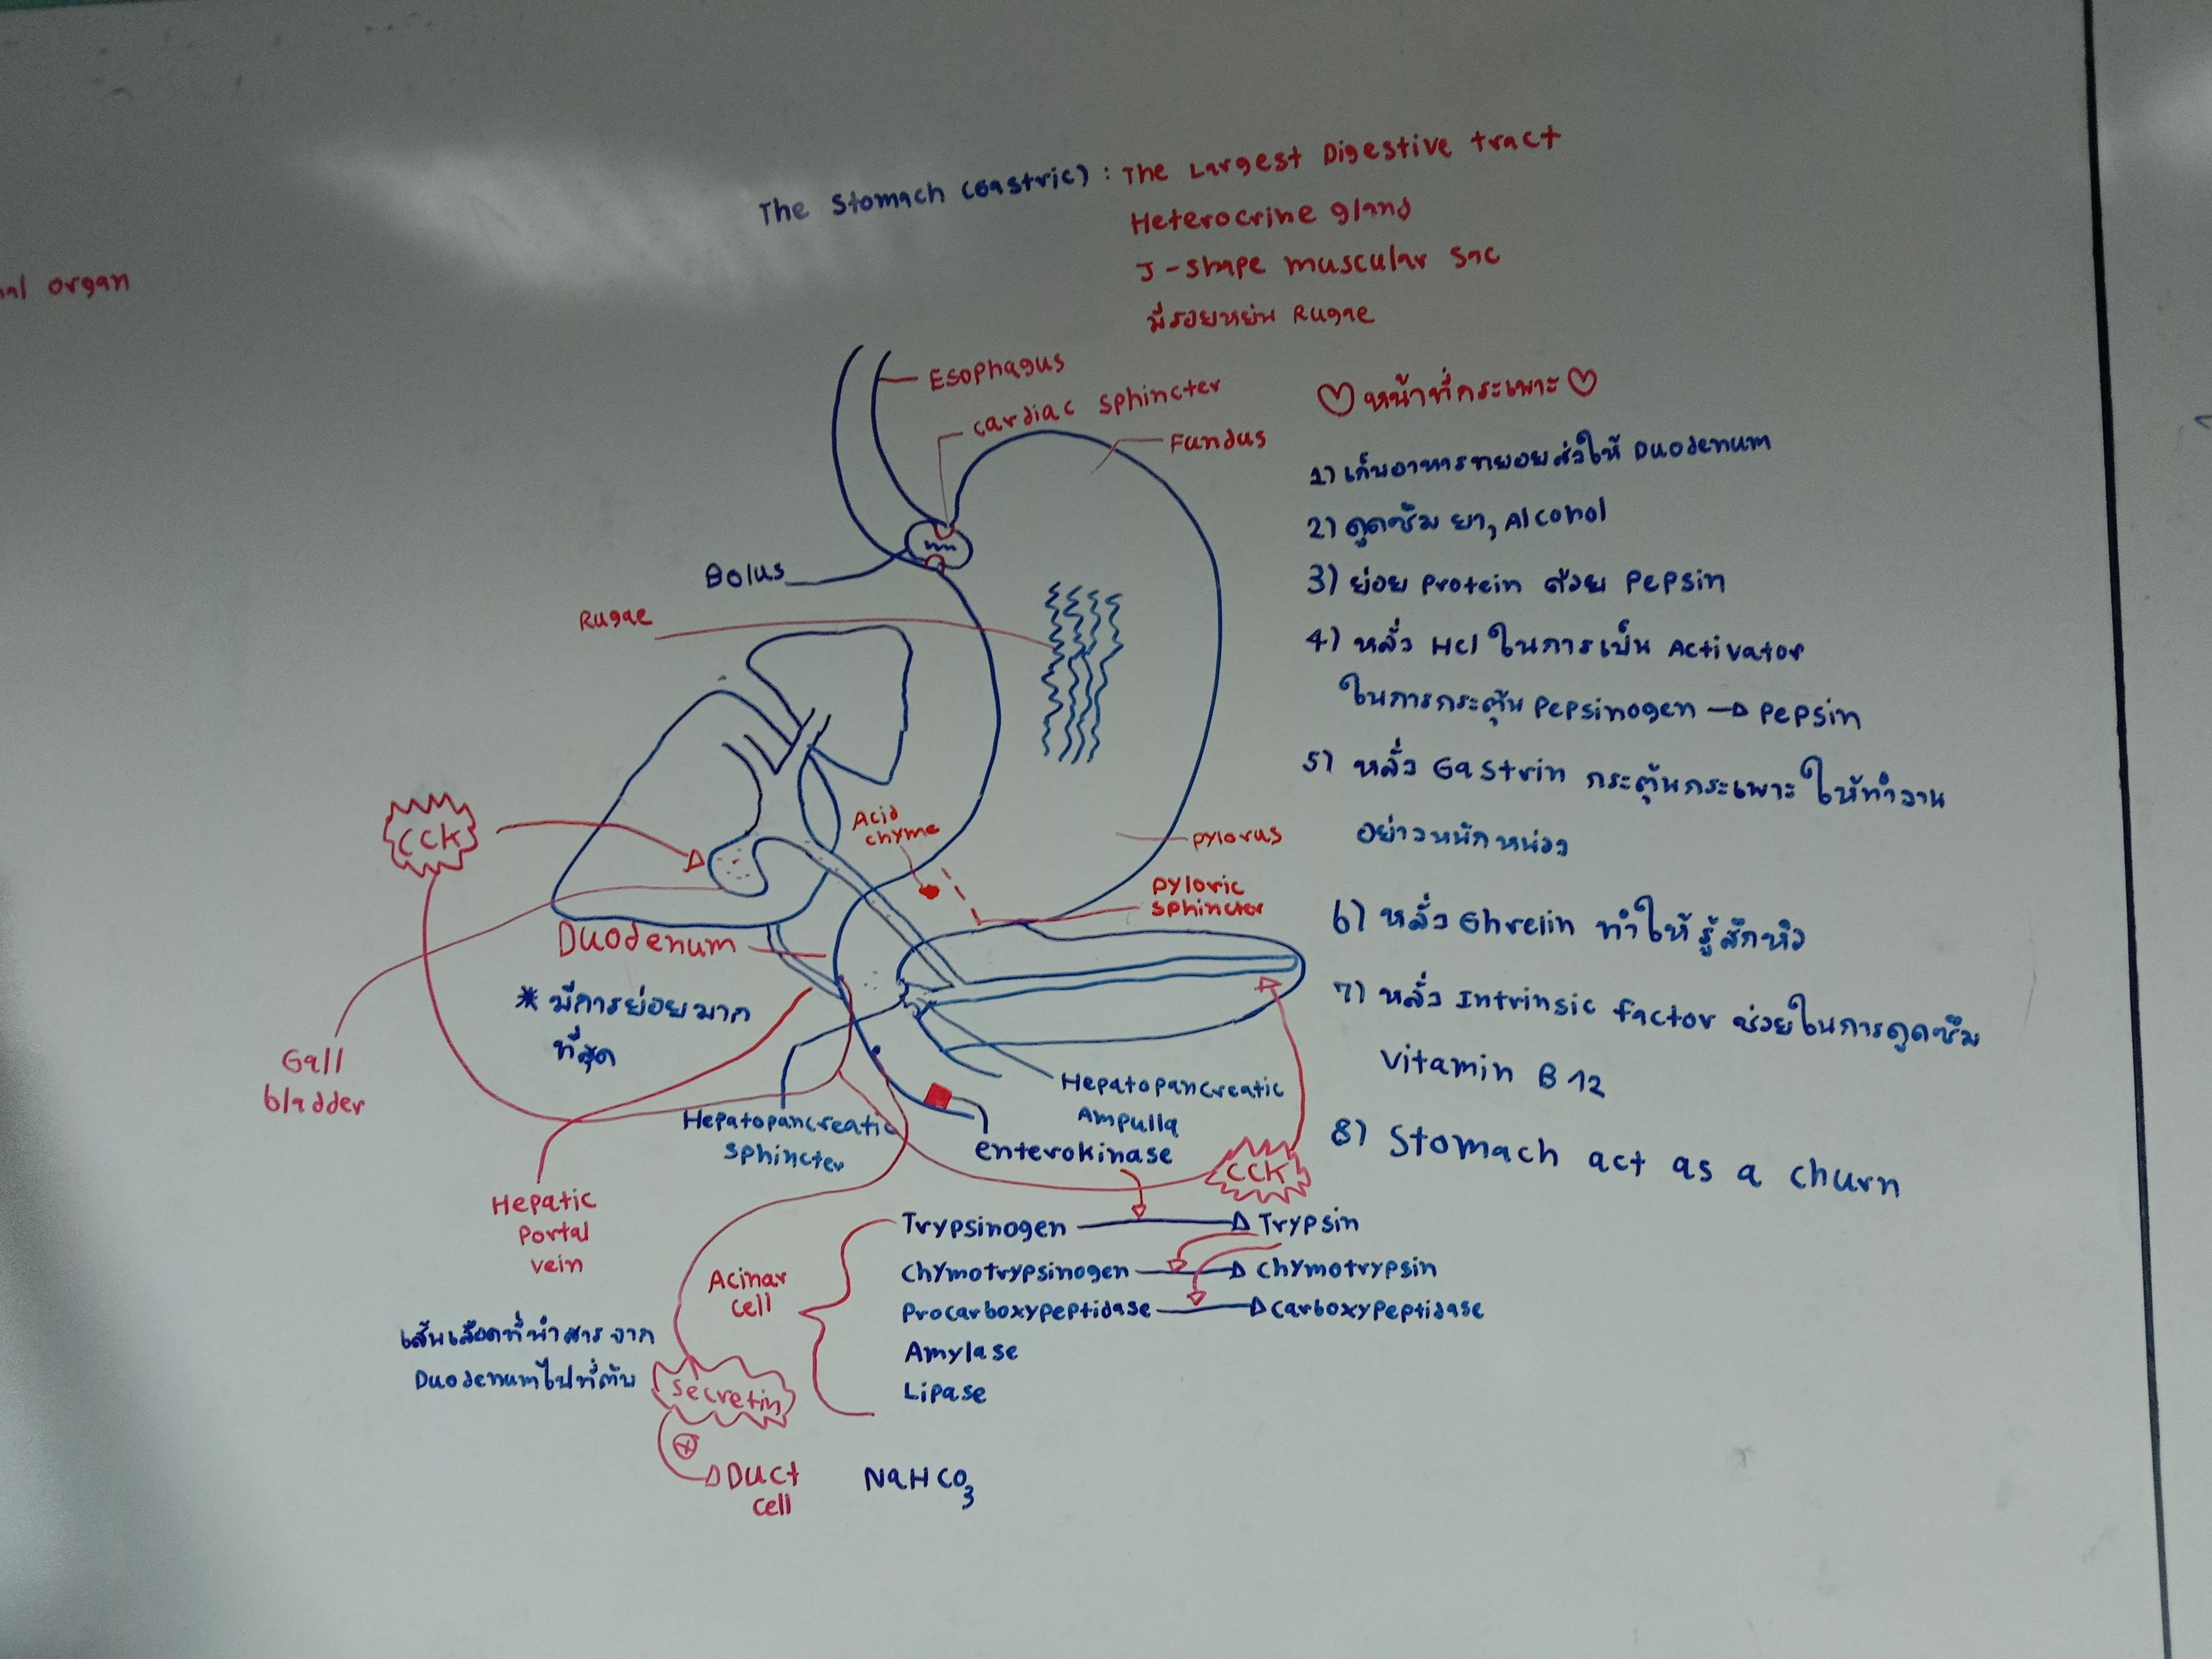 The Stomach (Gastric) : The Largest Digestive tract
Heterocrine gland
J-shape muscular sac
มีรอยหย่น Rugae
organ
Esophagus
cardiac sphincter
Fundus
Bolus
Rugae
Acid
chyme
pylorus
pyloric
sphincter
CCK
Duodenum
*มีการย่อยมาก
ที่สุด
Gall
bladder
Hepatopancreatic
sphincter
Hepatopancreatic
Ampulla
enterokinase
CCK
Hepatic
portal
vein
เส้นเลือดที่นำสารจาก
Duodenumไปที่ตับ
Secretin
+
Duct
cell
NaHCO3
Acinar
cell
Trypsinogen → Trypsin
Chymotrypsinogen → Chymotrypsin
Procarboxypeptidase → Carboxypeptidase
Amylase
Lipase
♡ หน้าที่กระเพาะ ♡
1) เก็บอาหารทยอยส่งให้ Duodenum
2) ดูดซึม ยา, Alcohol
3) ย่อย Protein ด้วย Pepsin
4) หลั่ง HCl ในการเป็น Activator
ในการกระตุ้น Pepsinogen → Pepsin
5) หลั่ง Gastrin กระตุ้นกระเพาะให้ทำงาน
อย่างหนักหน่วง
6) หลั่ง Ghrelin ทำให้รู้สึกหิว
7) หลั่ง Intrinsic factor ช่วยในการดูดซึม
Vitamin B12
8) Stomach act as a churn